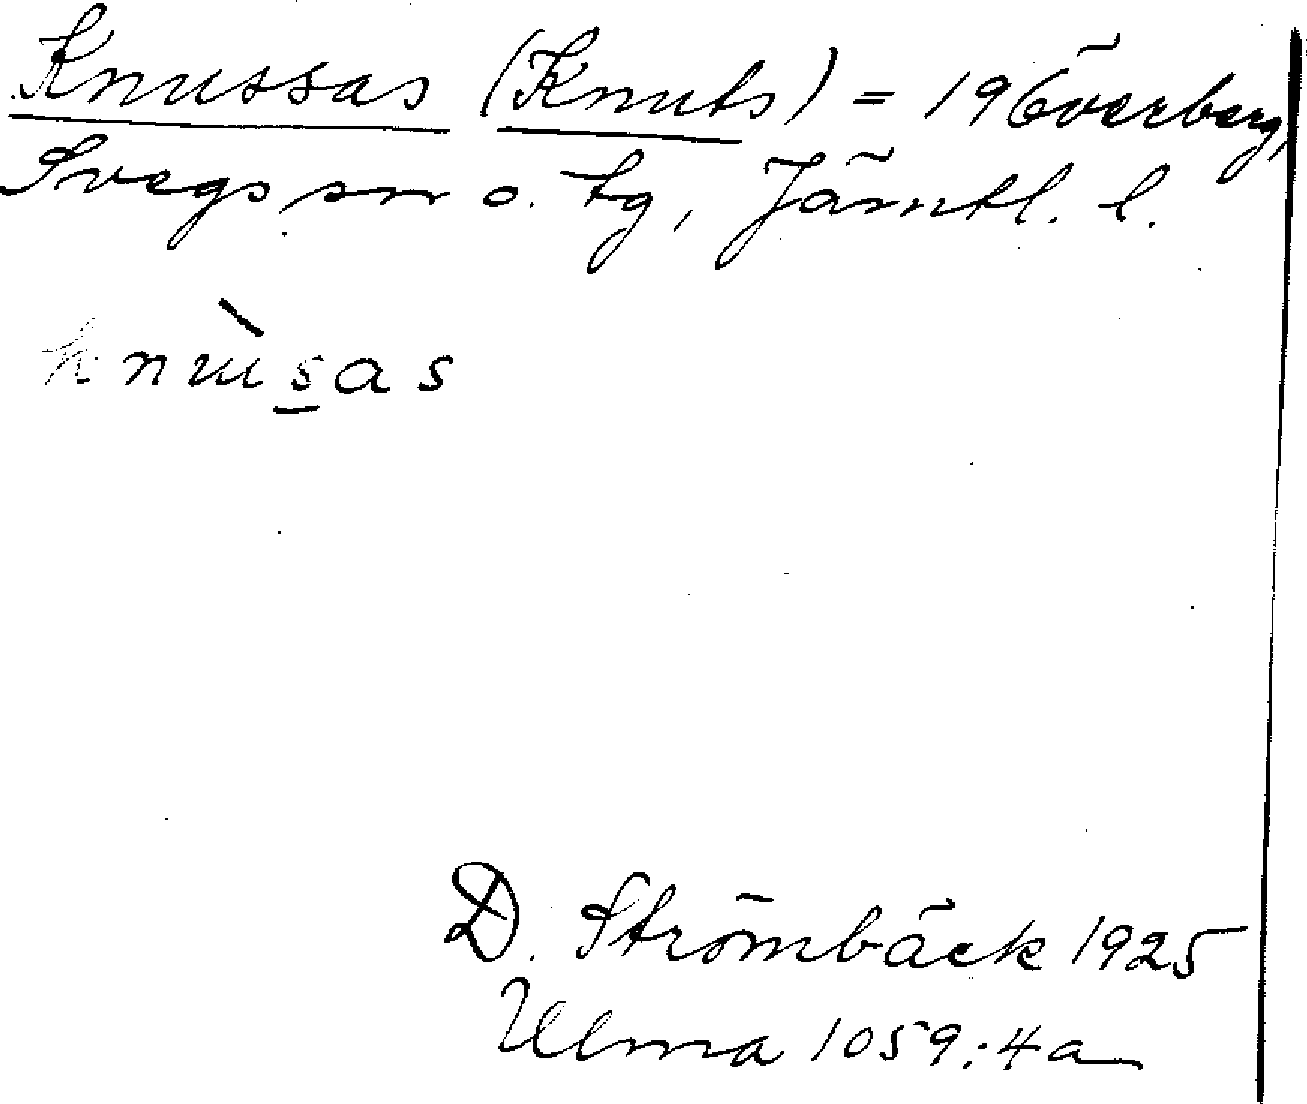 Knussas (Knuts) = 19⁶ Överberg,
Svegs sn o. tg, Jämtl. l.
knùs̲as
D. Strömbäck 1925
Ulma 1059:4a